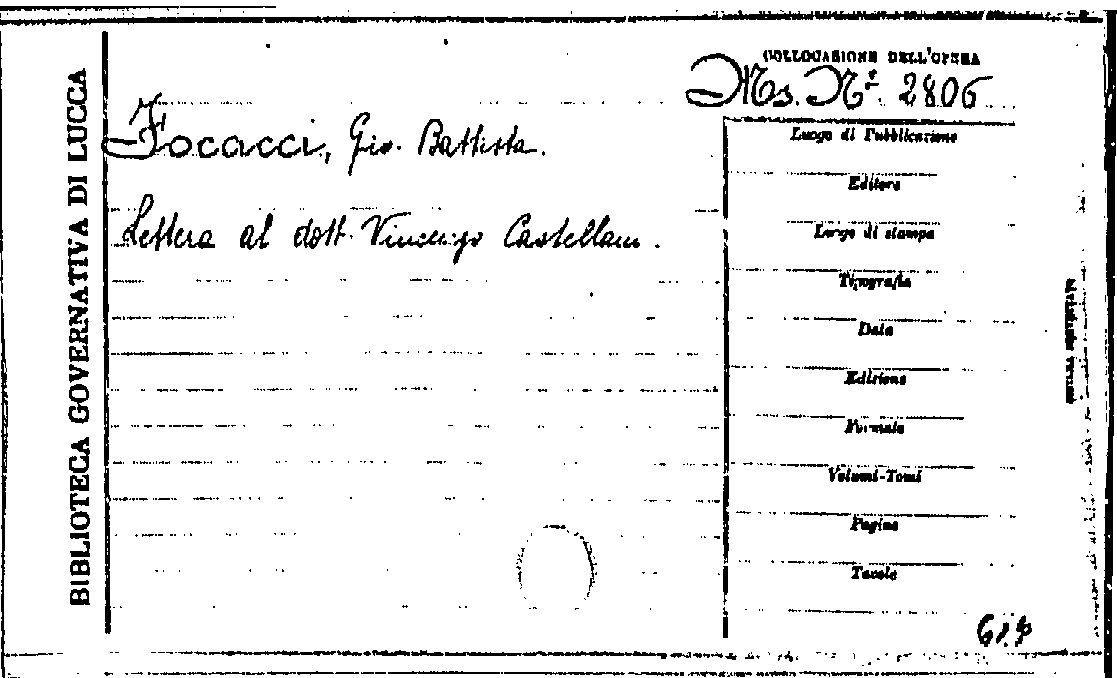 BIBLIOTECA GOVERNATIVA DI LUCCA
COLLOCAZIONE DELL'OPERA
Ms. Nº. 2806
Focacci, Gio. Battista.
Lettera al dott. Vincenzo Castellani.
Luogo di Pubblicazione
Editore
Luogo di stampa
Tipografia
Data
Edizione
Formato
Volumi-Tomi
Pagine
Tavole